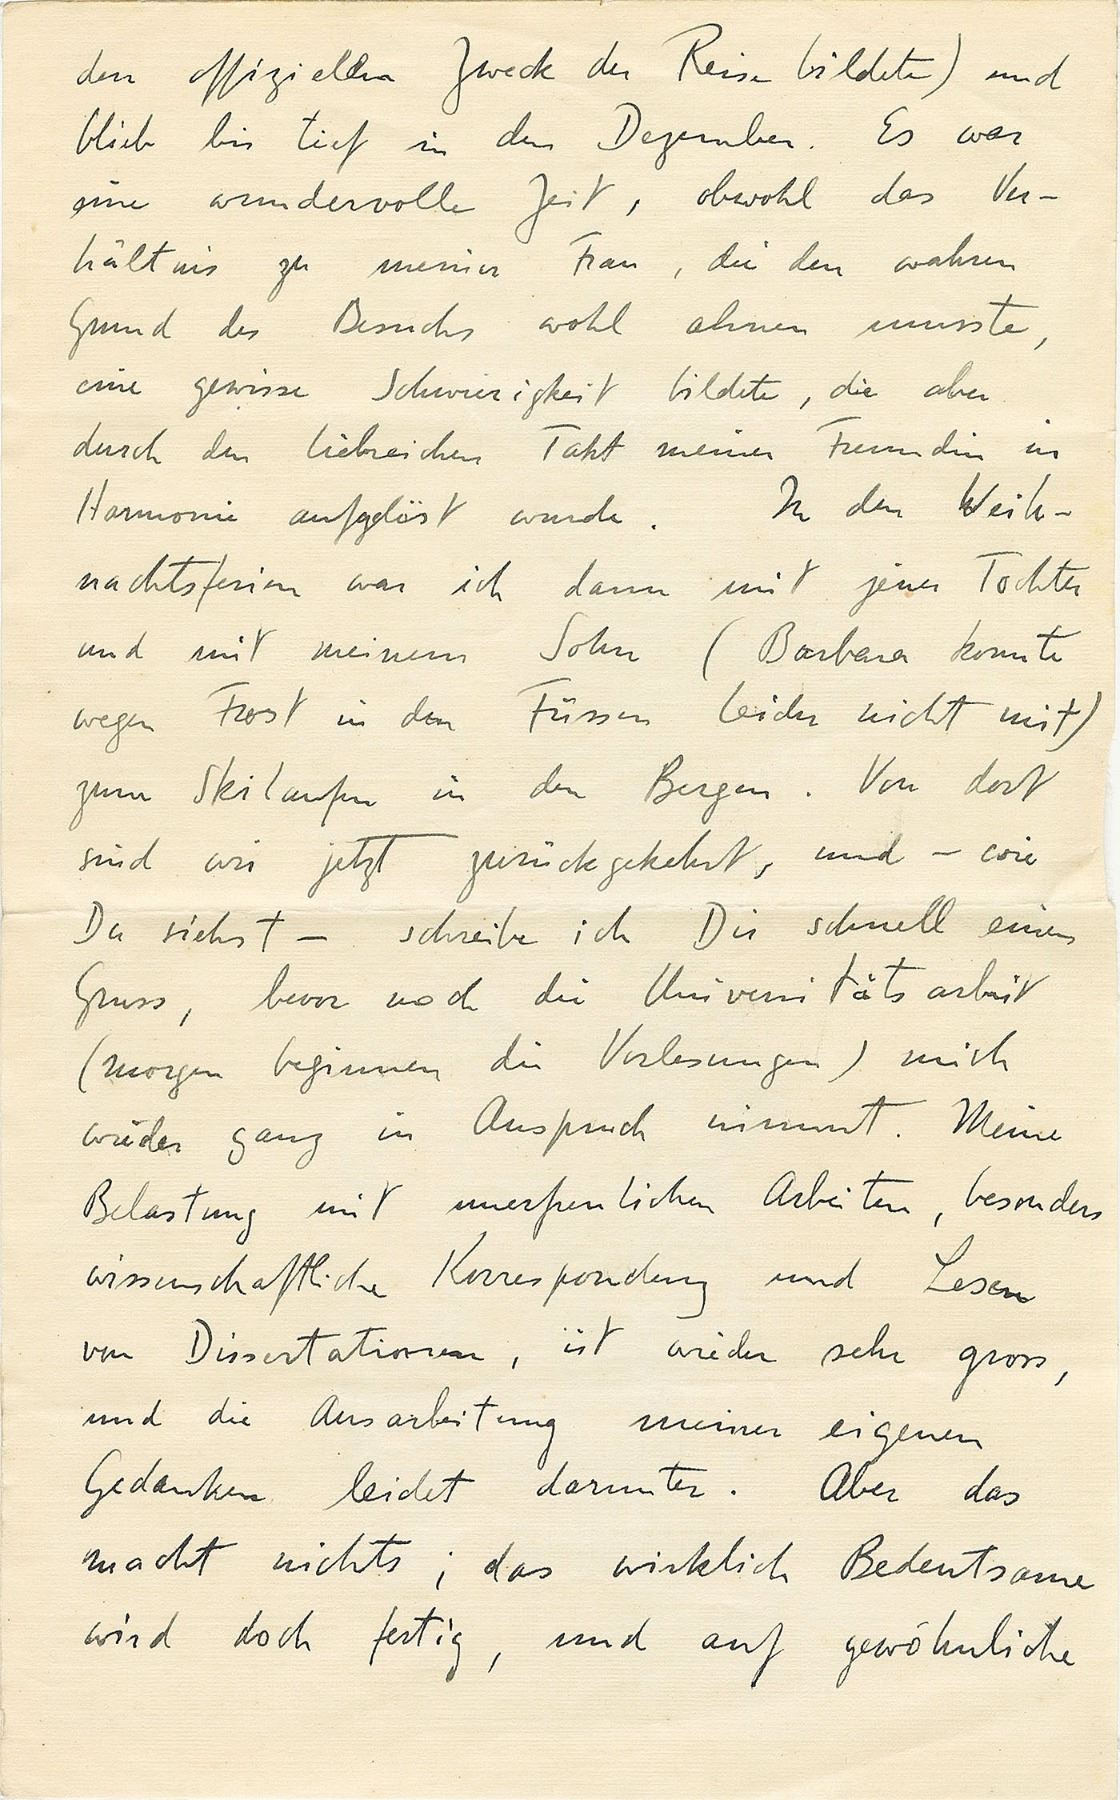 den offiziellen Zweck der Reise bildete) und
blieb bis tief in den Dezember. Es war
eine wundervolle Zeit, obwohl das Ver-
hältnis zu meiner Frau, die den wahren
Grund des Besuchs wohl ahnen musste,
eine gewisse Schwierigkeit bildete, die aber
durch den liebreichen Takt meiner Freundin in
Harmonie aufgelöst wurde. In den Weih-
nachtsferien war ich dann mit jener Tochter
und mit meinem Sohn (Barbara konnte
wegen Frost in den Füssen leider nicht mit)
zum Skilaufen in den Bergen. Von dort
sind wir jetzt zurückgekehrt, und – wie
Du siehst – schreibe ich Dir schnell einen
Gruss, bevor noch die Universitätsarbeit
(morgen beginnen die Vorlesungen) mich
wieder ganz in Anspruch nimmt. Meine
Belastung mit unerfreulichen Arbeiten, besonders
wissenschaftliche Korrespondenz und Lesen
von Dissertationen, ist wieder sehr gross,
und die Ausarbeitung meiner eigenen
Gedanken leidet darunter. Aber das
macht nichts; das wirklich Bedeutsame
wird doch fertig, und auf gewöhnliche